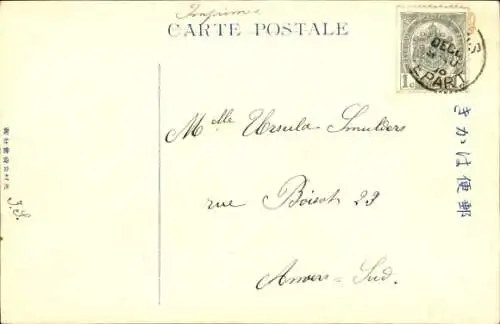 Imprimé
CARTE POSTALE
DEPART
1c
きかは便郵
Mlle Ursula Smulders
rue Boisot 23
Anvers-Sud.
J.S.